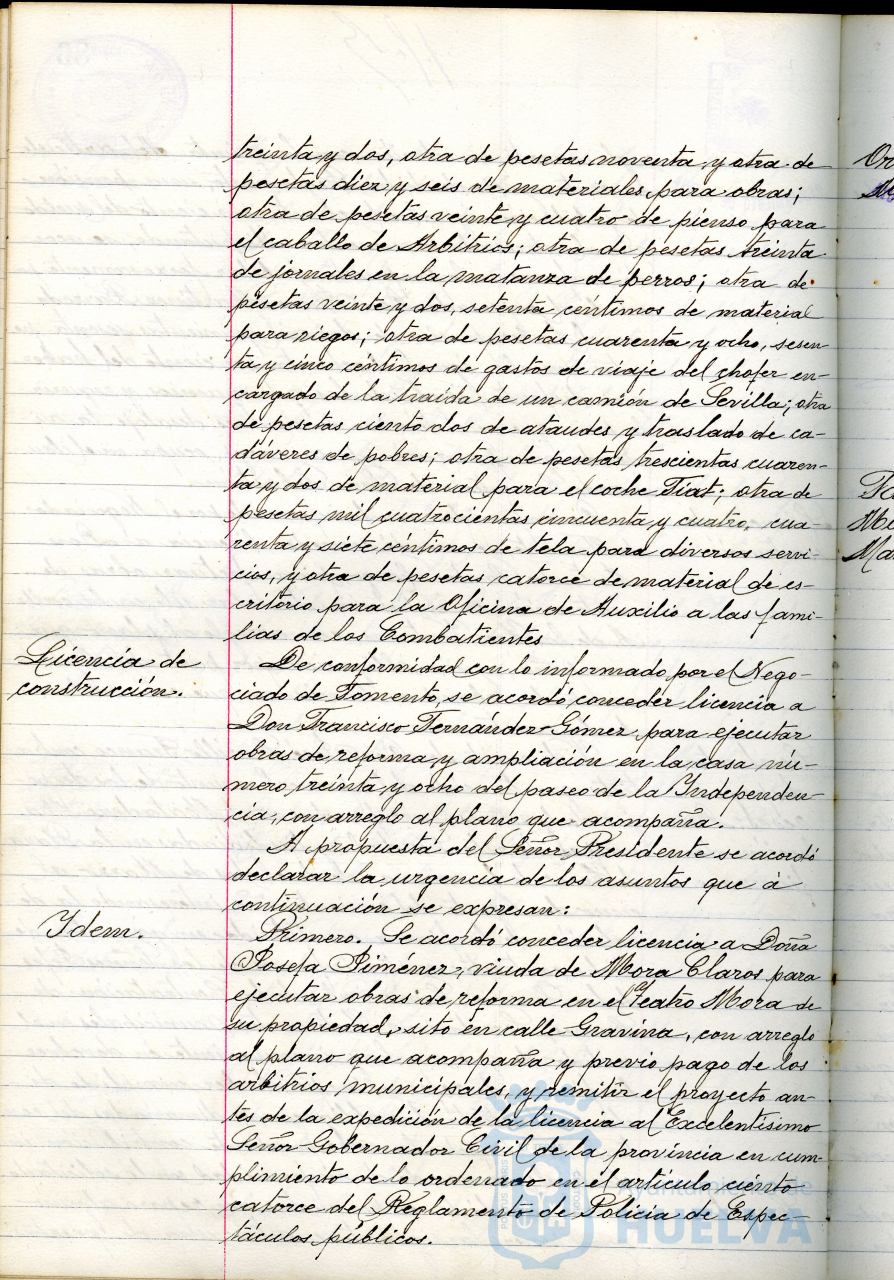 treinta y dos, otra de pesetas noventa y otra de
pesetas diez y seis de materiales para obras;
otra de pesetas veinte y cuatro de pienso para
el caballo de Arbitrios; otra de pesetas treinta
de jornales en la matanza de perros; otra de
pesetas veinte y dos, setenta céntimos de material
para riegos; otra de pesetas cuarenta y ocho, sesen-
ta y cinco céntimos de gastos de viaje del chofer en-
cargado de la traída de un camión de Sevilla; otra
de pesetas ciento dos de ataudes y traslado de ca-
dáveres de pobres; otra de pesetas trescientas cuaren-
ta y dos de material para el coche Fiat; otra de
pesetas mil cuatrocientas cincuenta y cuatro, cua-
renta y siete céntimos de tela para diversos servi-
cios, y otra de pesetas catorce de material de es-
critorio para la Oficina de Auxilio a las fami-
lias de los Combatientes
Licencia de
construcción.
De conformidad con lo informado por el Nego-
ciado de Fomento, se acordó conceder licencia a
Don Francisco Fernández Gómez para ejecutar
obras de reforma y ampliación en la casa nú-
mero treinta y ocho del paseo de la Independen-
cia, con arreglo al plano que acompaña.
A propuesta del Señor Presidente se acordó
declarar la urgencia de los asuntos que á
continuación se expresan:
Ydem.
Primero. Se acordó conceder licencia a Doña
Josefa Jiménez, viuda de Mora Claros para
ejecutar obras de reforma en el Teatro Mora de
su propiedad, sito en calle Gravina, con arreglo
al plano que acompaña y previo pago de los
arbitrios municipales, y remitir el proyecto an-
tes de la expedición de la licencia al Excelentísimo
Señor Gobernador Civil de la provincia en cum-
plimiento de lo ordenado en el artículo ciento
catorce del Reglamento de Policía de Espec-
táculos públicos.
Ayuntamiento de
HUELVA